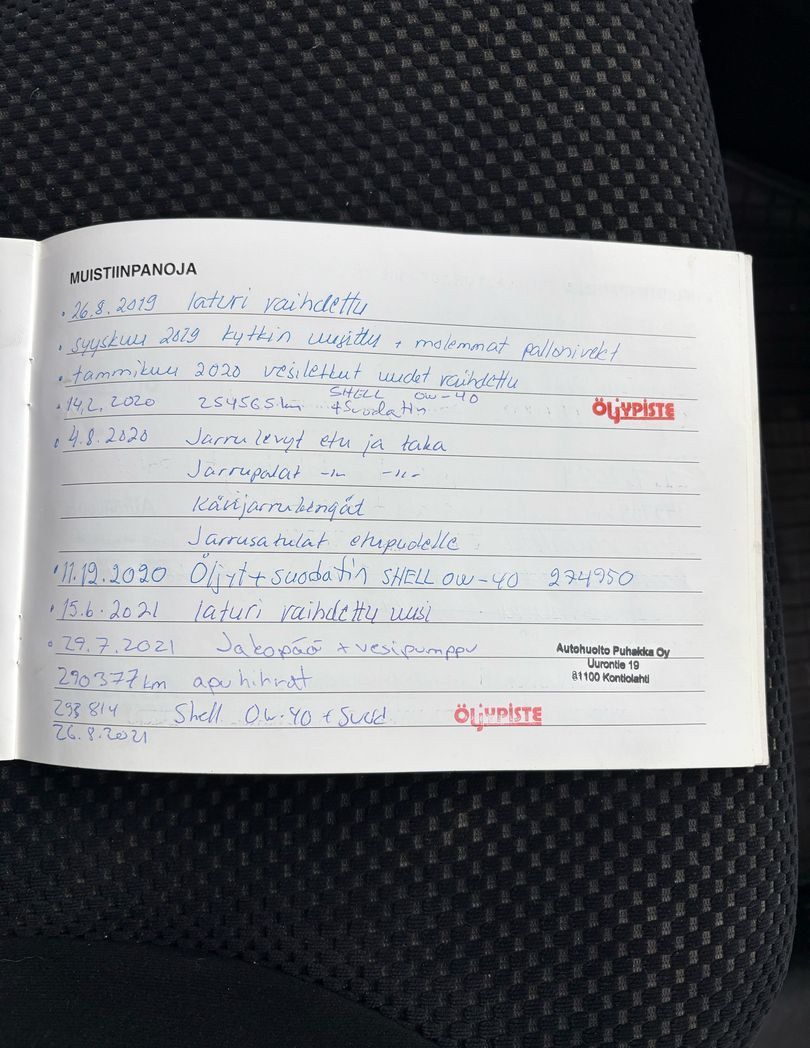 MUISTIINPANOJA
• 26.8.2019 laturi vaihdettu
• syyskuu 2019 kytkin uusittu + molemmat pallonivelet
• tammikuu 2020 vesiletkut uudet vaihdettu
• 14.2.2020 254565km SHELL 0W-40 + suodatin ÖLJYPISTE
• 4.8.2020 Jarrulevyt etu ja taka
Jarrupalat -"- -"-
Käsijarrukengät
Jarrusatulat etupuolelle
• 11.12.2020 Öljyt + suodatin SHELL 0W-40 274950
• 15.6.2021 laturi vaihdettu uusi
• 29.7.2021 Jakopää + vesipumppu
290377km apuhihnat
Autohuolto Puhakka Oy
Uurontie 19
81100 Kontiolahti
293814 Shell 0w-40 + Suod ÖLJYPISTE
26.8.2021